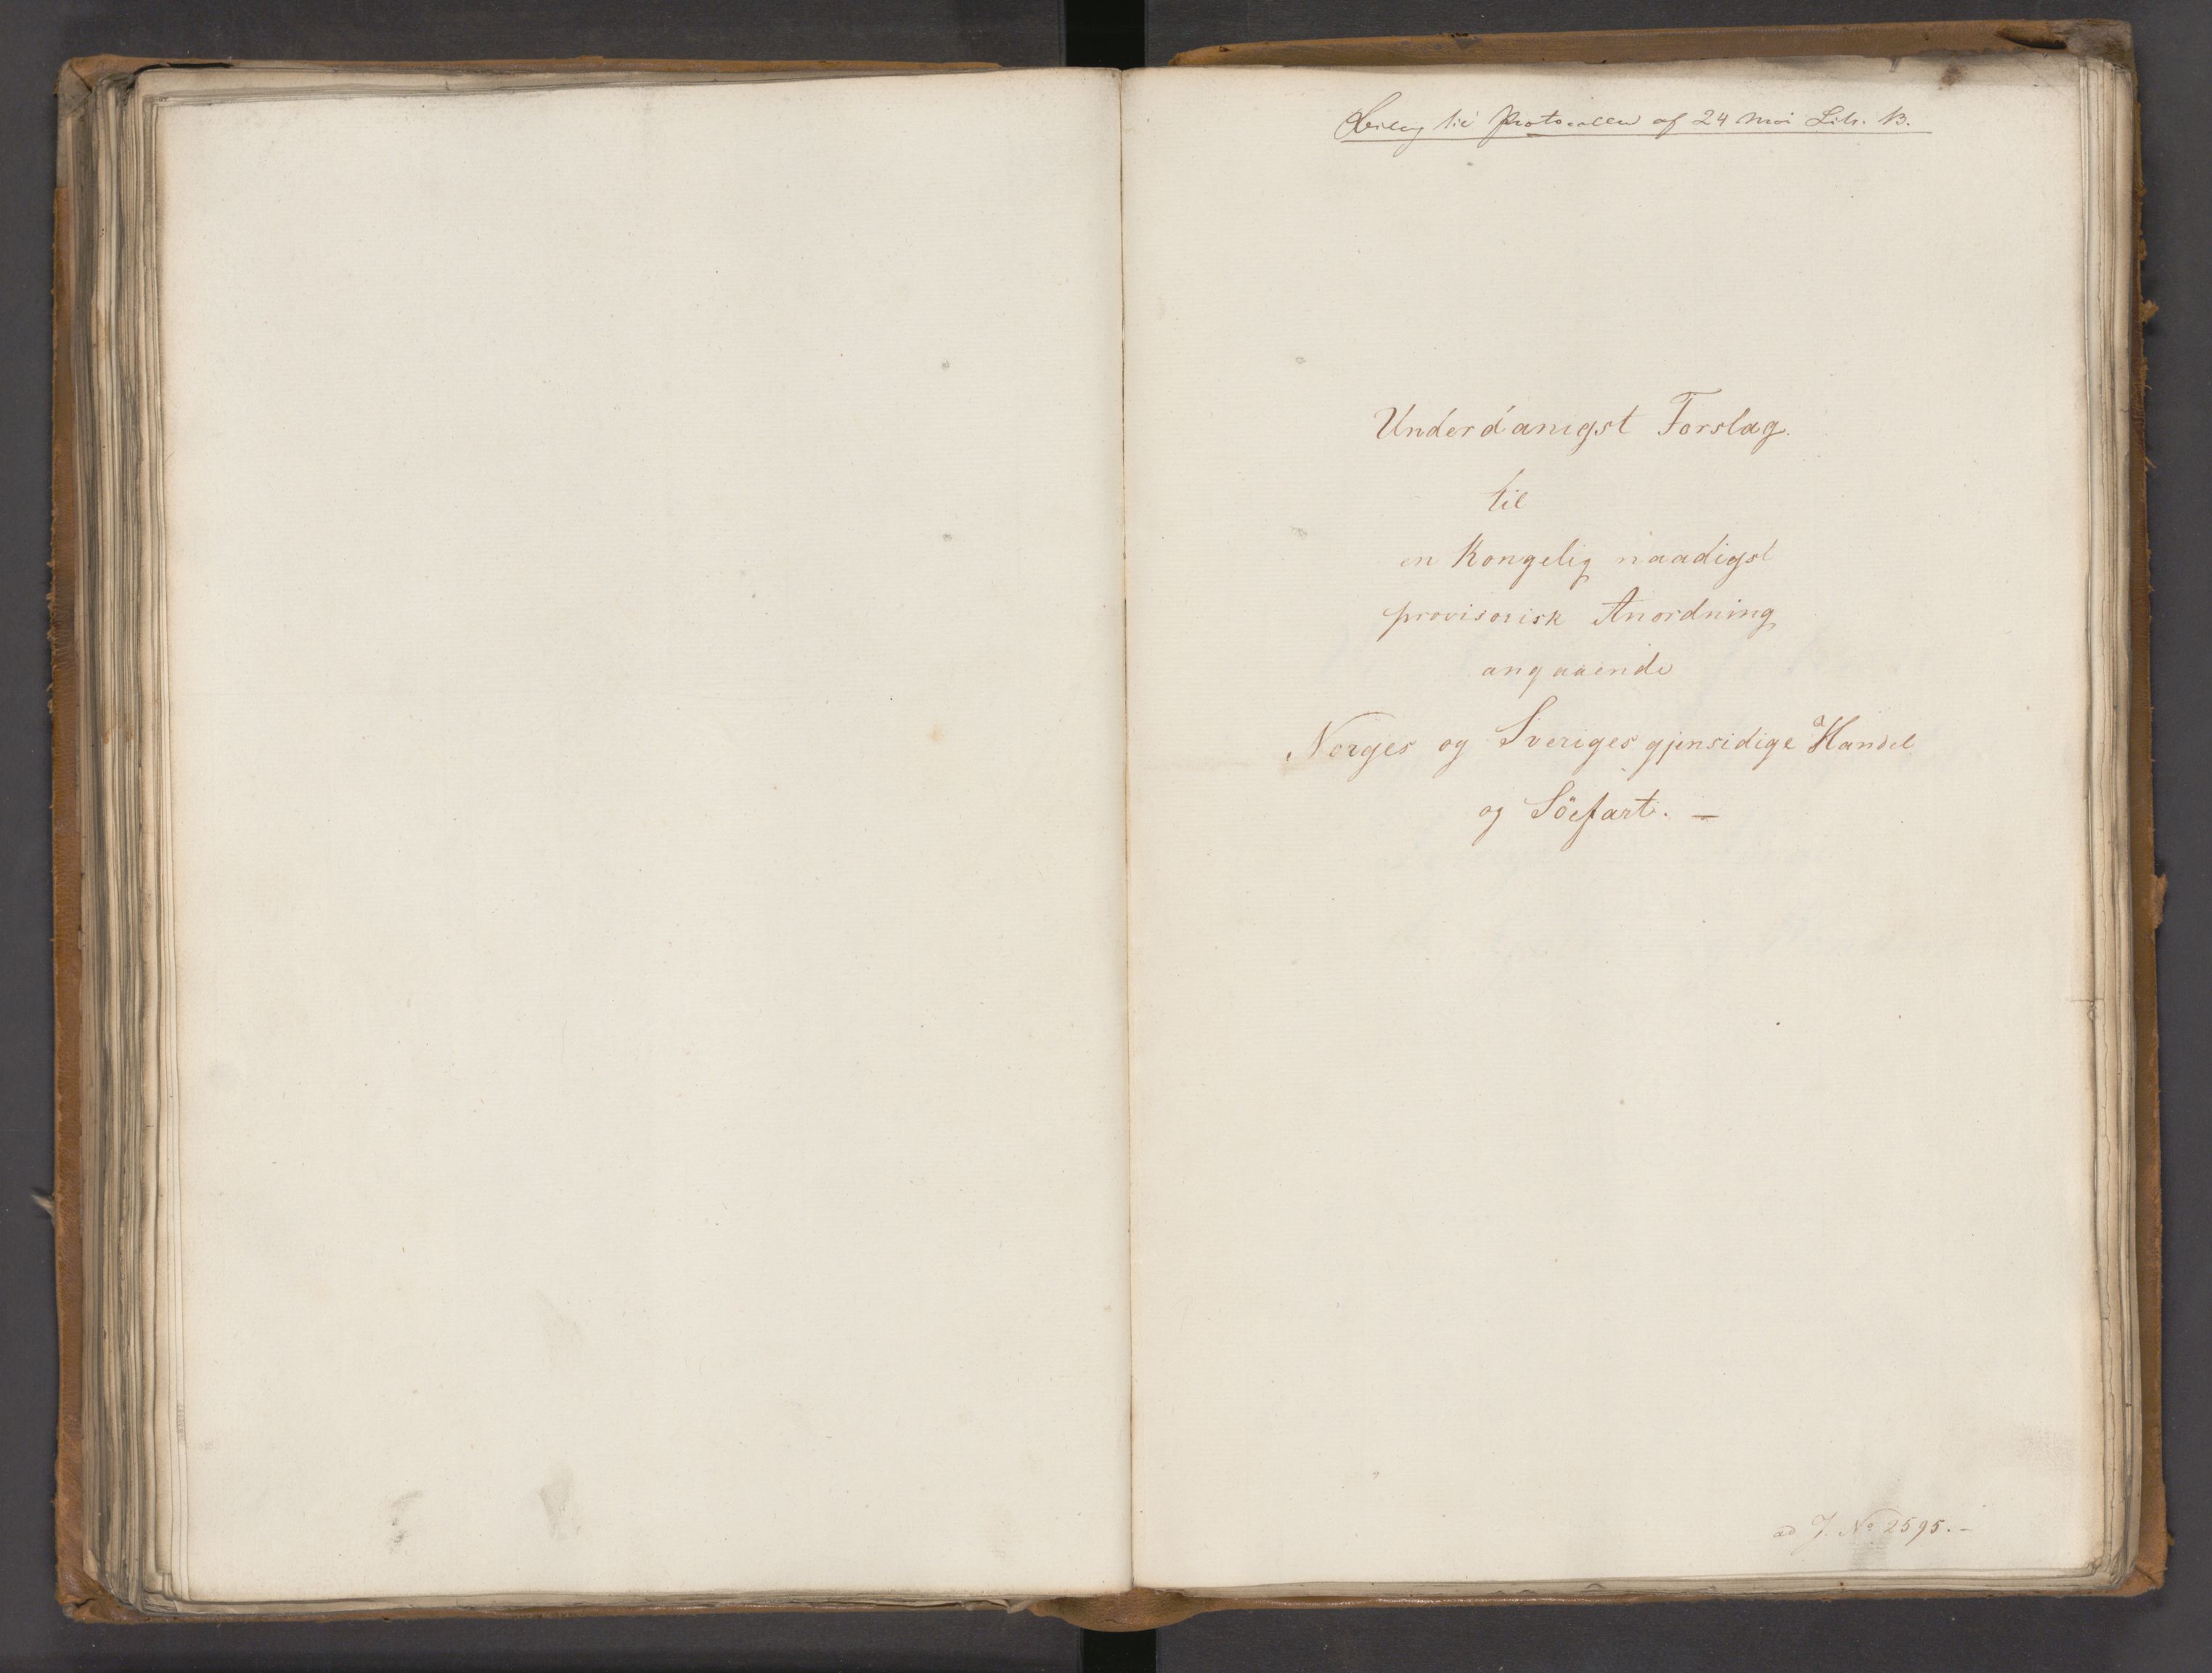 Bilag til Protocollen af 24 Mai Litr. B.
Underdanigst Forslag.
til
en Kongelig naadigst
provisorisk Anordning
angaaende
Norges og Sveriges gjensidige Handel
og Söefart. –
ad J. No 2595. –